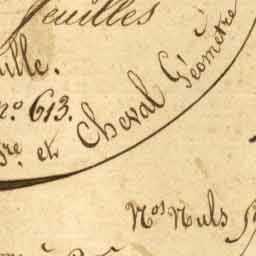 feuilles
ille.
no. 613.
gre. et Cheval Géomètre
Nos Nuls